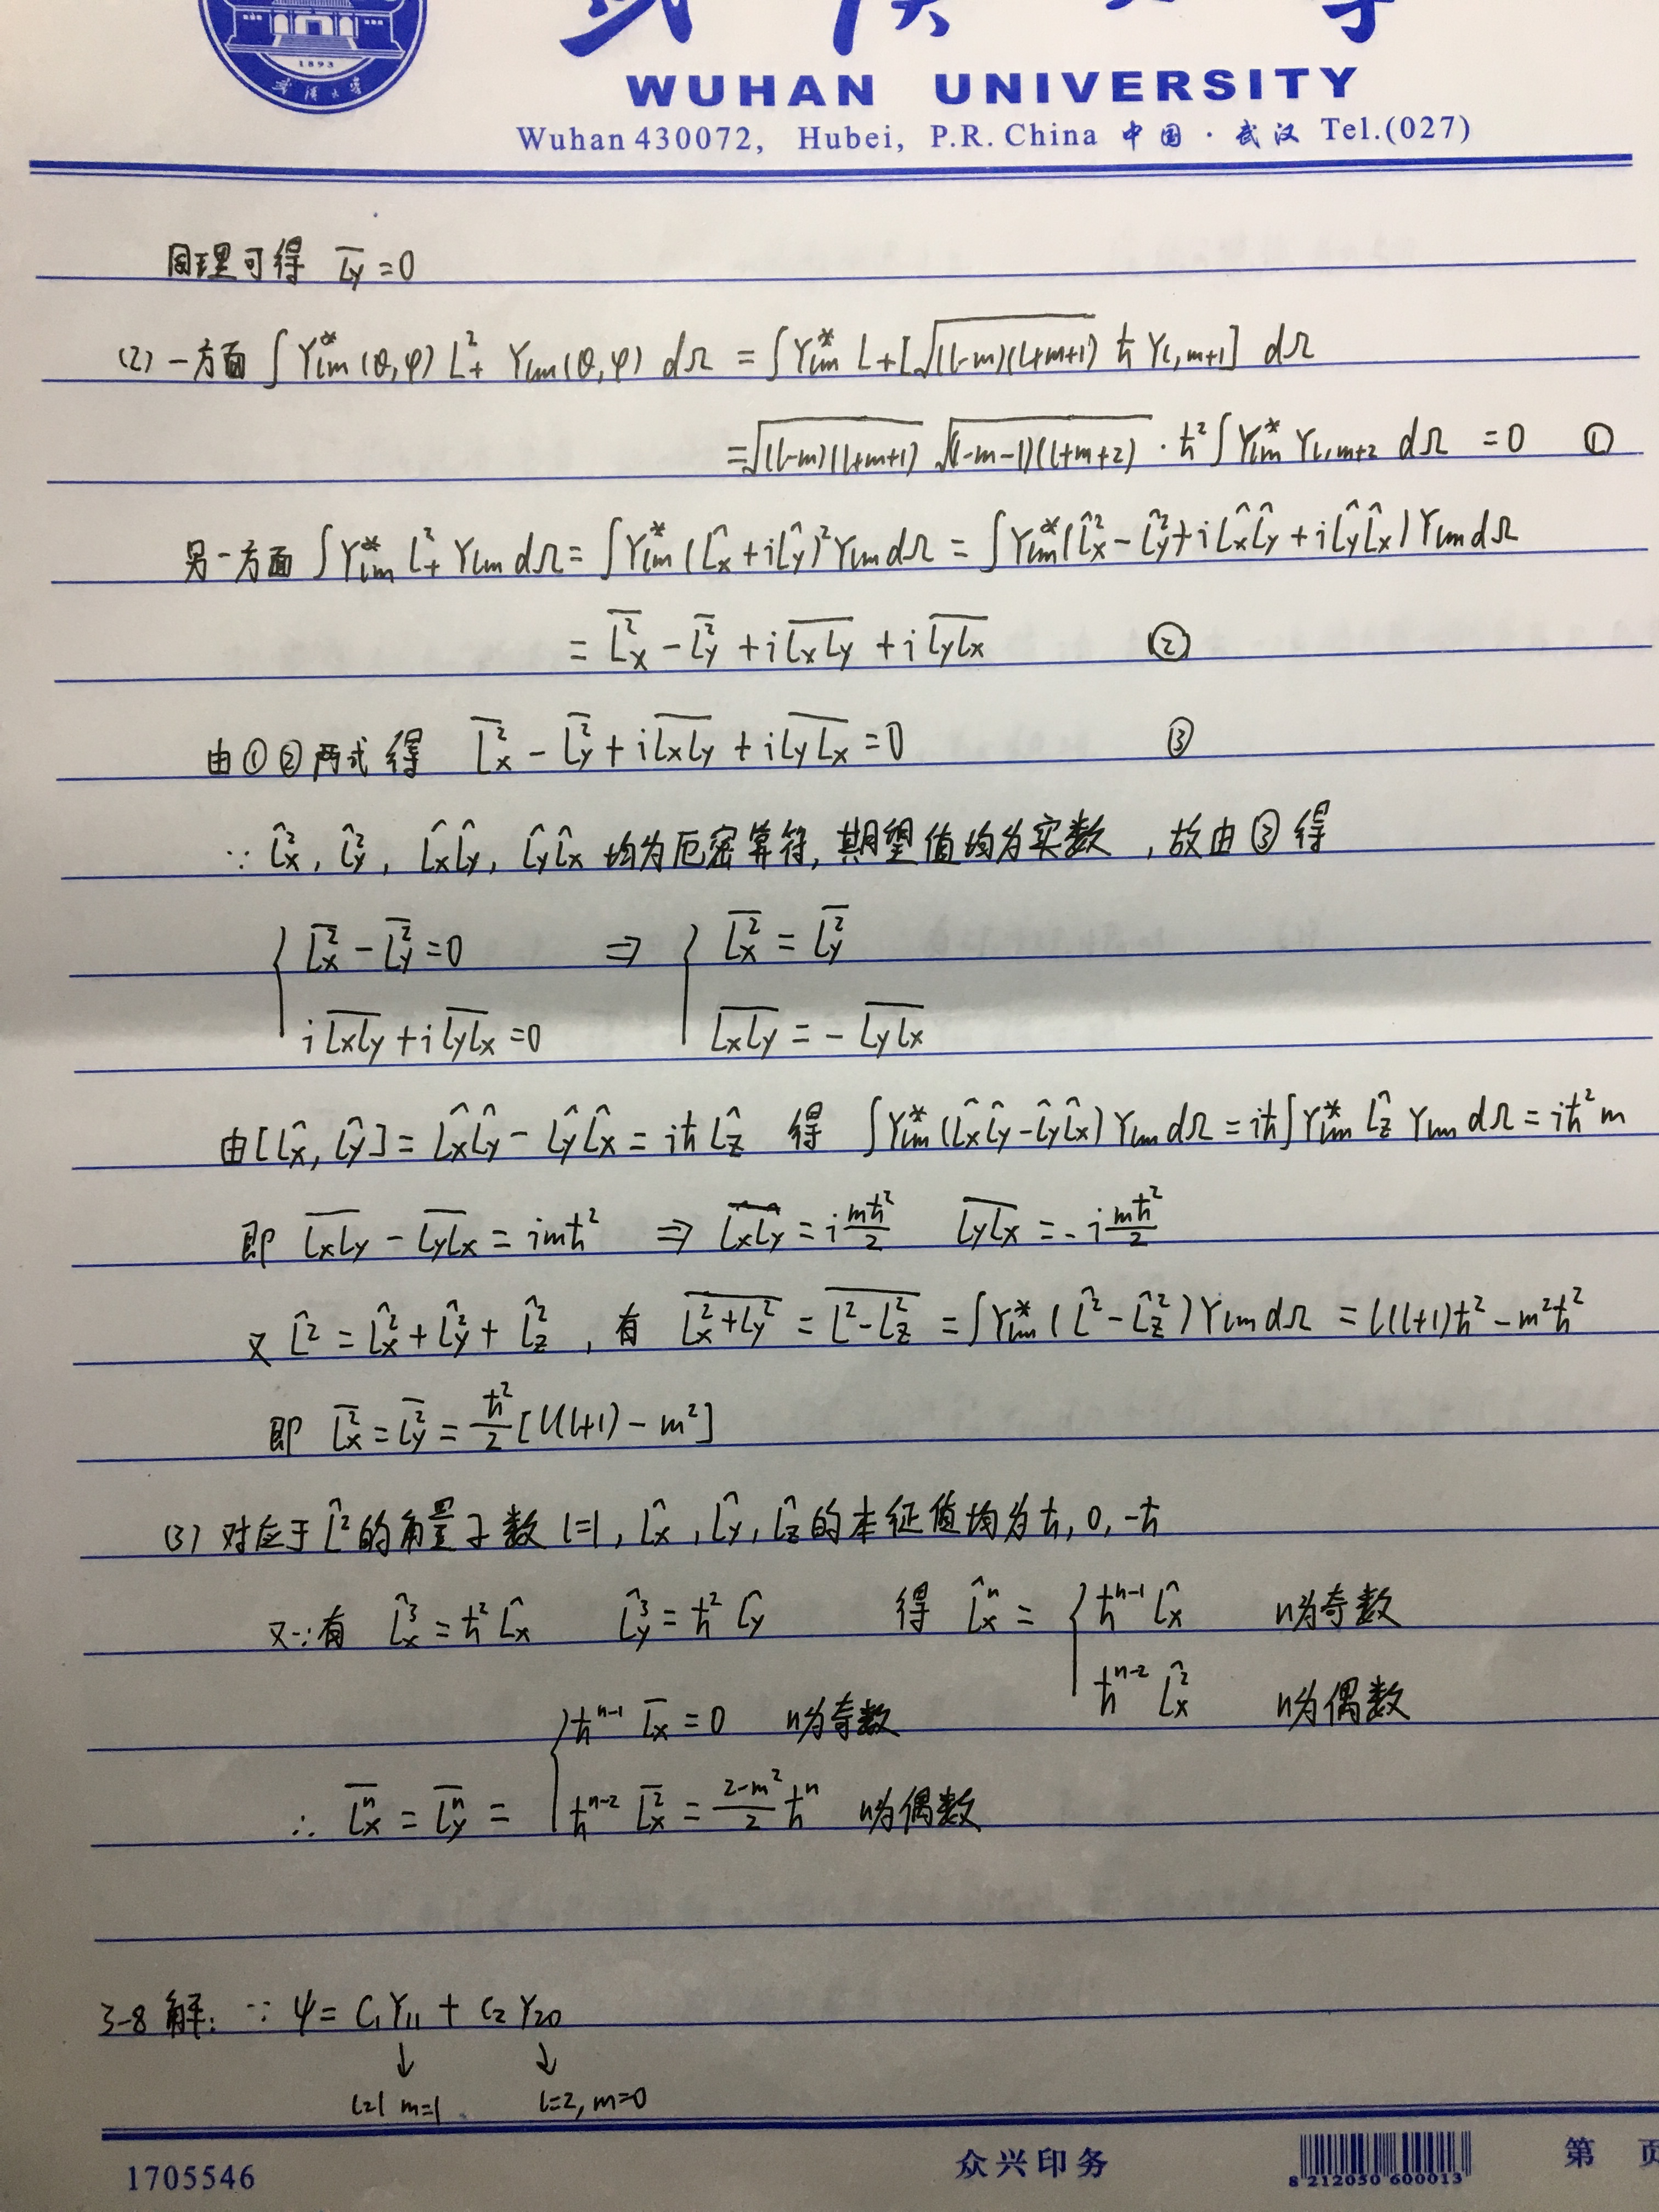 武汉大学
1893
武汉大学
WUHAN UNIVERSITY
Wuhan 430072, Hubei, P.R. China 中国·武汉 Tel.(027)
同理可得 $\overline{L_y}=0$
(2) 一方面 $\int Y_{lm}^*(\theta,\varphi) L_+^2 Y_{lm}(\theta,\varphi) d\Omega = \int Y_{lm}^* L_+[\sqrt{(l-m)(l+m+1)} \hbar Y_{l,m+1}] d\Omega$
$=\sqrt{(l-m)(l+m+1)} \sqrt{(l-m-1)(l+m+2)} \cdot \hbar^2 \int Y_{lm}^* Y_{l,m+2} d\Omega = 0$ ①
另一方面 $\int Y_{lm}^* L_+^2 Y_{lm} d\Omega = \int Y_{lm}^* (\hat{L}_x + i\hat{L}_y)^2 Y_{lm} d\Omega = \int Y_{lm}^* (\hat{L}_x^2 - \hat{L}_y^2 + i\hat{L}_x\hat{L}_y + i\hat{L}_y\hat{L}_x) Y_{lm} d\Omega$
$= \overline{L_x^2} - \overline{L_y^2} + i\overline{L_xL_y} + i\overline{L_yL_x}$ ②
由①②两式得 $\overline{L_x^2} - \overline{L_y^2} + i\overline{L_xL_y} + i\overline{L_yL_x} = 0$ ③
∵ $\hat{L}_x^2, \hat{L}_y^2, \hat{L}_x\hat{L}_y, \hat{L}_y\hat{L}_x$ 均为厄密算符, 期望值均为实数, 故由③得
$\begin{cases} \overline{L_x^2} - \overline{L_y^2} = 0 \\ i\overline{L_xL_y} + i\overline{L_yL_x} = 0 \end{cases} \Rightarrow \begin{cases} \overline{L_x^2} = \overline{L_y^2} \\ \overline{L_xL_y} = -\overline{L_yL_x} \end{cases}$
由 $[\hat{L}_x, \hat{L}_y] = \hat{L}_x\hat{L}_y - \hat{L}_y\hat{L}_x = i\hbar\hat{L}_z$ 得 $\int Y_{lm}^* (\hat{L}_x\hat{L}_y - \hat{L}_y\hat{L}_x) Y_{lm} d\Omega = i\hbar \int Y_{lm}^* \hat{L}_z Y_{lm} d\Omega = i\hbar^2 m$
即 $\overline{L_xL_y} - \overline{L_yL_x} = im\hbar^2 \Rightarrow \overline{L_xL_y} = i\frac{m\hbar^2}{2}$ $\overline{L_yL_x} = -i\frac{m\hbar^2}{2}$
又 $\hat{L}^2 = \hat{L}_x^2 + \hat{L}_y^2 + \hat{L}_z^2$, 有 $\overline{L_x^2 + L_y^2} = \overline{L^2 - L_z^2} = \int Y_{lm}^* (\hat{L}^2 - \hat{L}_z^2) Y_{lm} d\Omega = l(l+1)\hbar^2 - m^2\hbar^2$
即 $\overline{L_x^2} = \overline{L_y^2} = \frac{\hbar^2}{2}[l(l+1) - m^2]$
(3) 对应于 $\hat{L}^2$ 的角量子数 l=1, $\hat{L}_x, \hat{L}_y, \hat{L}_z$ 的本征值均为 $\hbar, 0, -\hbar$
又∵有 $\hat{L}_x^3 = \hbar^2\hat{L}_x$ $\hat{L}_y^3 = \hbar^2\hat{L}_y$ 得 $\hat{L}_x^n = \begin{cases} \hbar^{n-1}\hat{L}_x & n为奇数 \\ \hbar^{n-2}\hat{L}_x^2 & n为偶数 \end{cases}$
∴ $\overline{L_x^n} = \overline{L_y^n} = \begin{cases} \hbar^{n-1}\overline{L_x} = 0 & n为奇数 \\ \hbar^{n-2}\overline{L_x^2} = \frac{2-m^2}{2}\hbar^n & n为偶数 \end{cases}$
3-8 解: ∵ $\psi = C_1Y_{11} + C_2Y_{20}$
↓ ↓
l=1 m=1 l=2, m=0
1705546 众兴印务 8 212050 600013 第 页